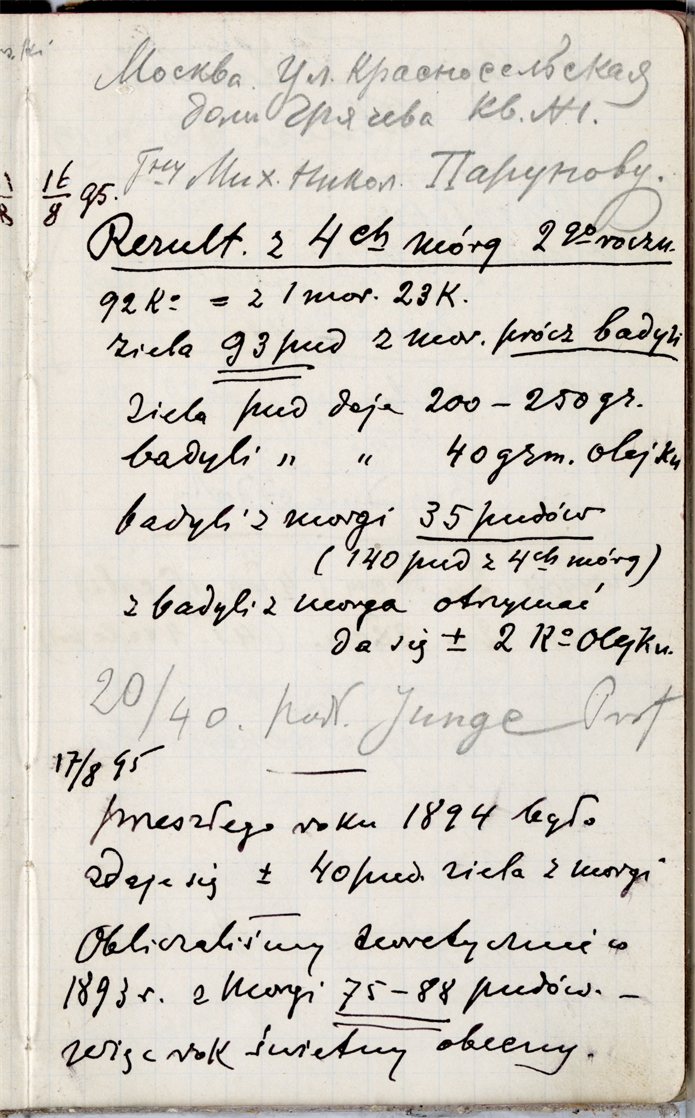 Москва. Ул. Красносельская
домъ Грячева Кв. №1.
Гну Мих. Никол. Парунову.
16/8 95.
Result. z 4ch mórg 2go roczn.
92 Ko = z 1 mor. 23 K.
ziela 93 pud z mor. prócz badyli
ziela pud daje 200 – 250 gr.
badyli " " 40 grm. Olejku
badyli z morgi 35 pudów
(140 pud z 4ch mórg)
z badyli z morga otrzymać
da się ± 2 Ko Olejku.
20/40. Junge Prof
17/8 95
przeszłego roku 1894 było
zdaje się ± 40 pud. ziela z morgi
Obliczaliśmy teoretycznie w
1893 r. z morgi 75 – 88 pudów. –
więc rok świetny obecny.